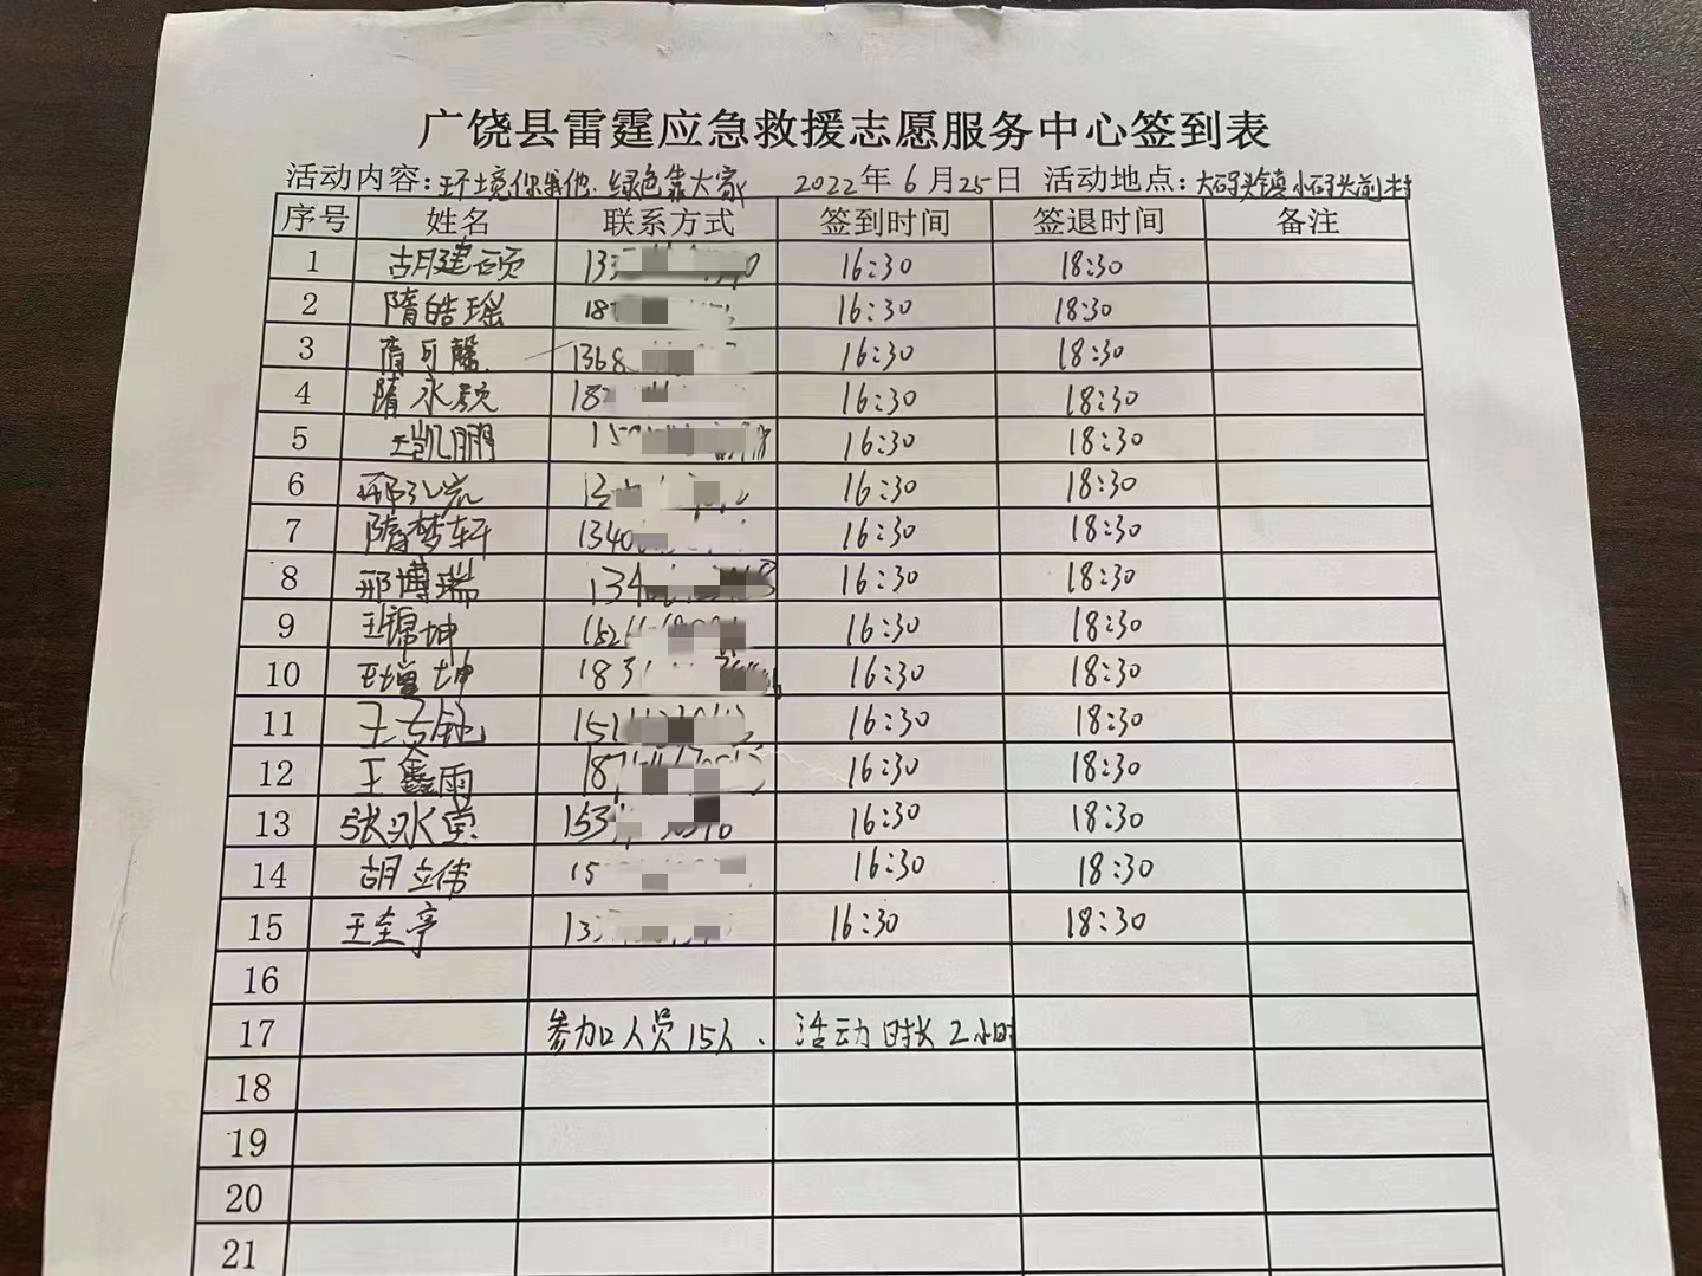 广饶县雷霆应急救援志愿服务中心签到表
活动内容:环境你我他.绿色靠大家 2022年6月25日 活动地点:大码头镇小码头前村
序号 姓名 联系方式 签到时间 签退时间 备注
1 胡建硕 16:30 18:30
2 隋皓瑶 18 16:30 18:30
3 隋可馨 1368 16:30 18:30
4 隋永颖 18 16:30 18:30
5 王凯鹏 15 16:30 18:30
6 邢 16:30 18:30
7 隋梦轩 1340 16:30 18:30
8 邢博瑞 134 16:30 18:30
9 王锦坤 16:30 18:30
10 王增坤 183 16:30 18:30
11 王 152 16:30 18:30
12 王鑫雨 187 16:30 18:30
13 张冰莹 153 16:30 18:30
14 胡立伟 15 16:30 18:30
15 王至亭 13 16:30 18:30
16
17 参加人员15人、活动时长2小时
18
19
20
21